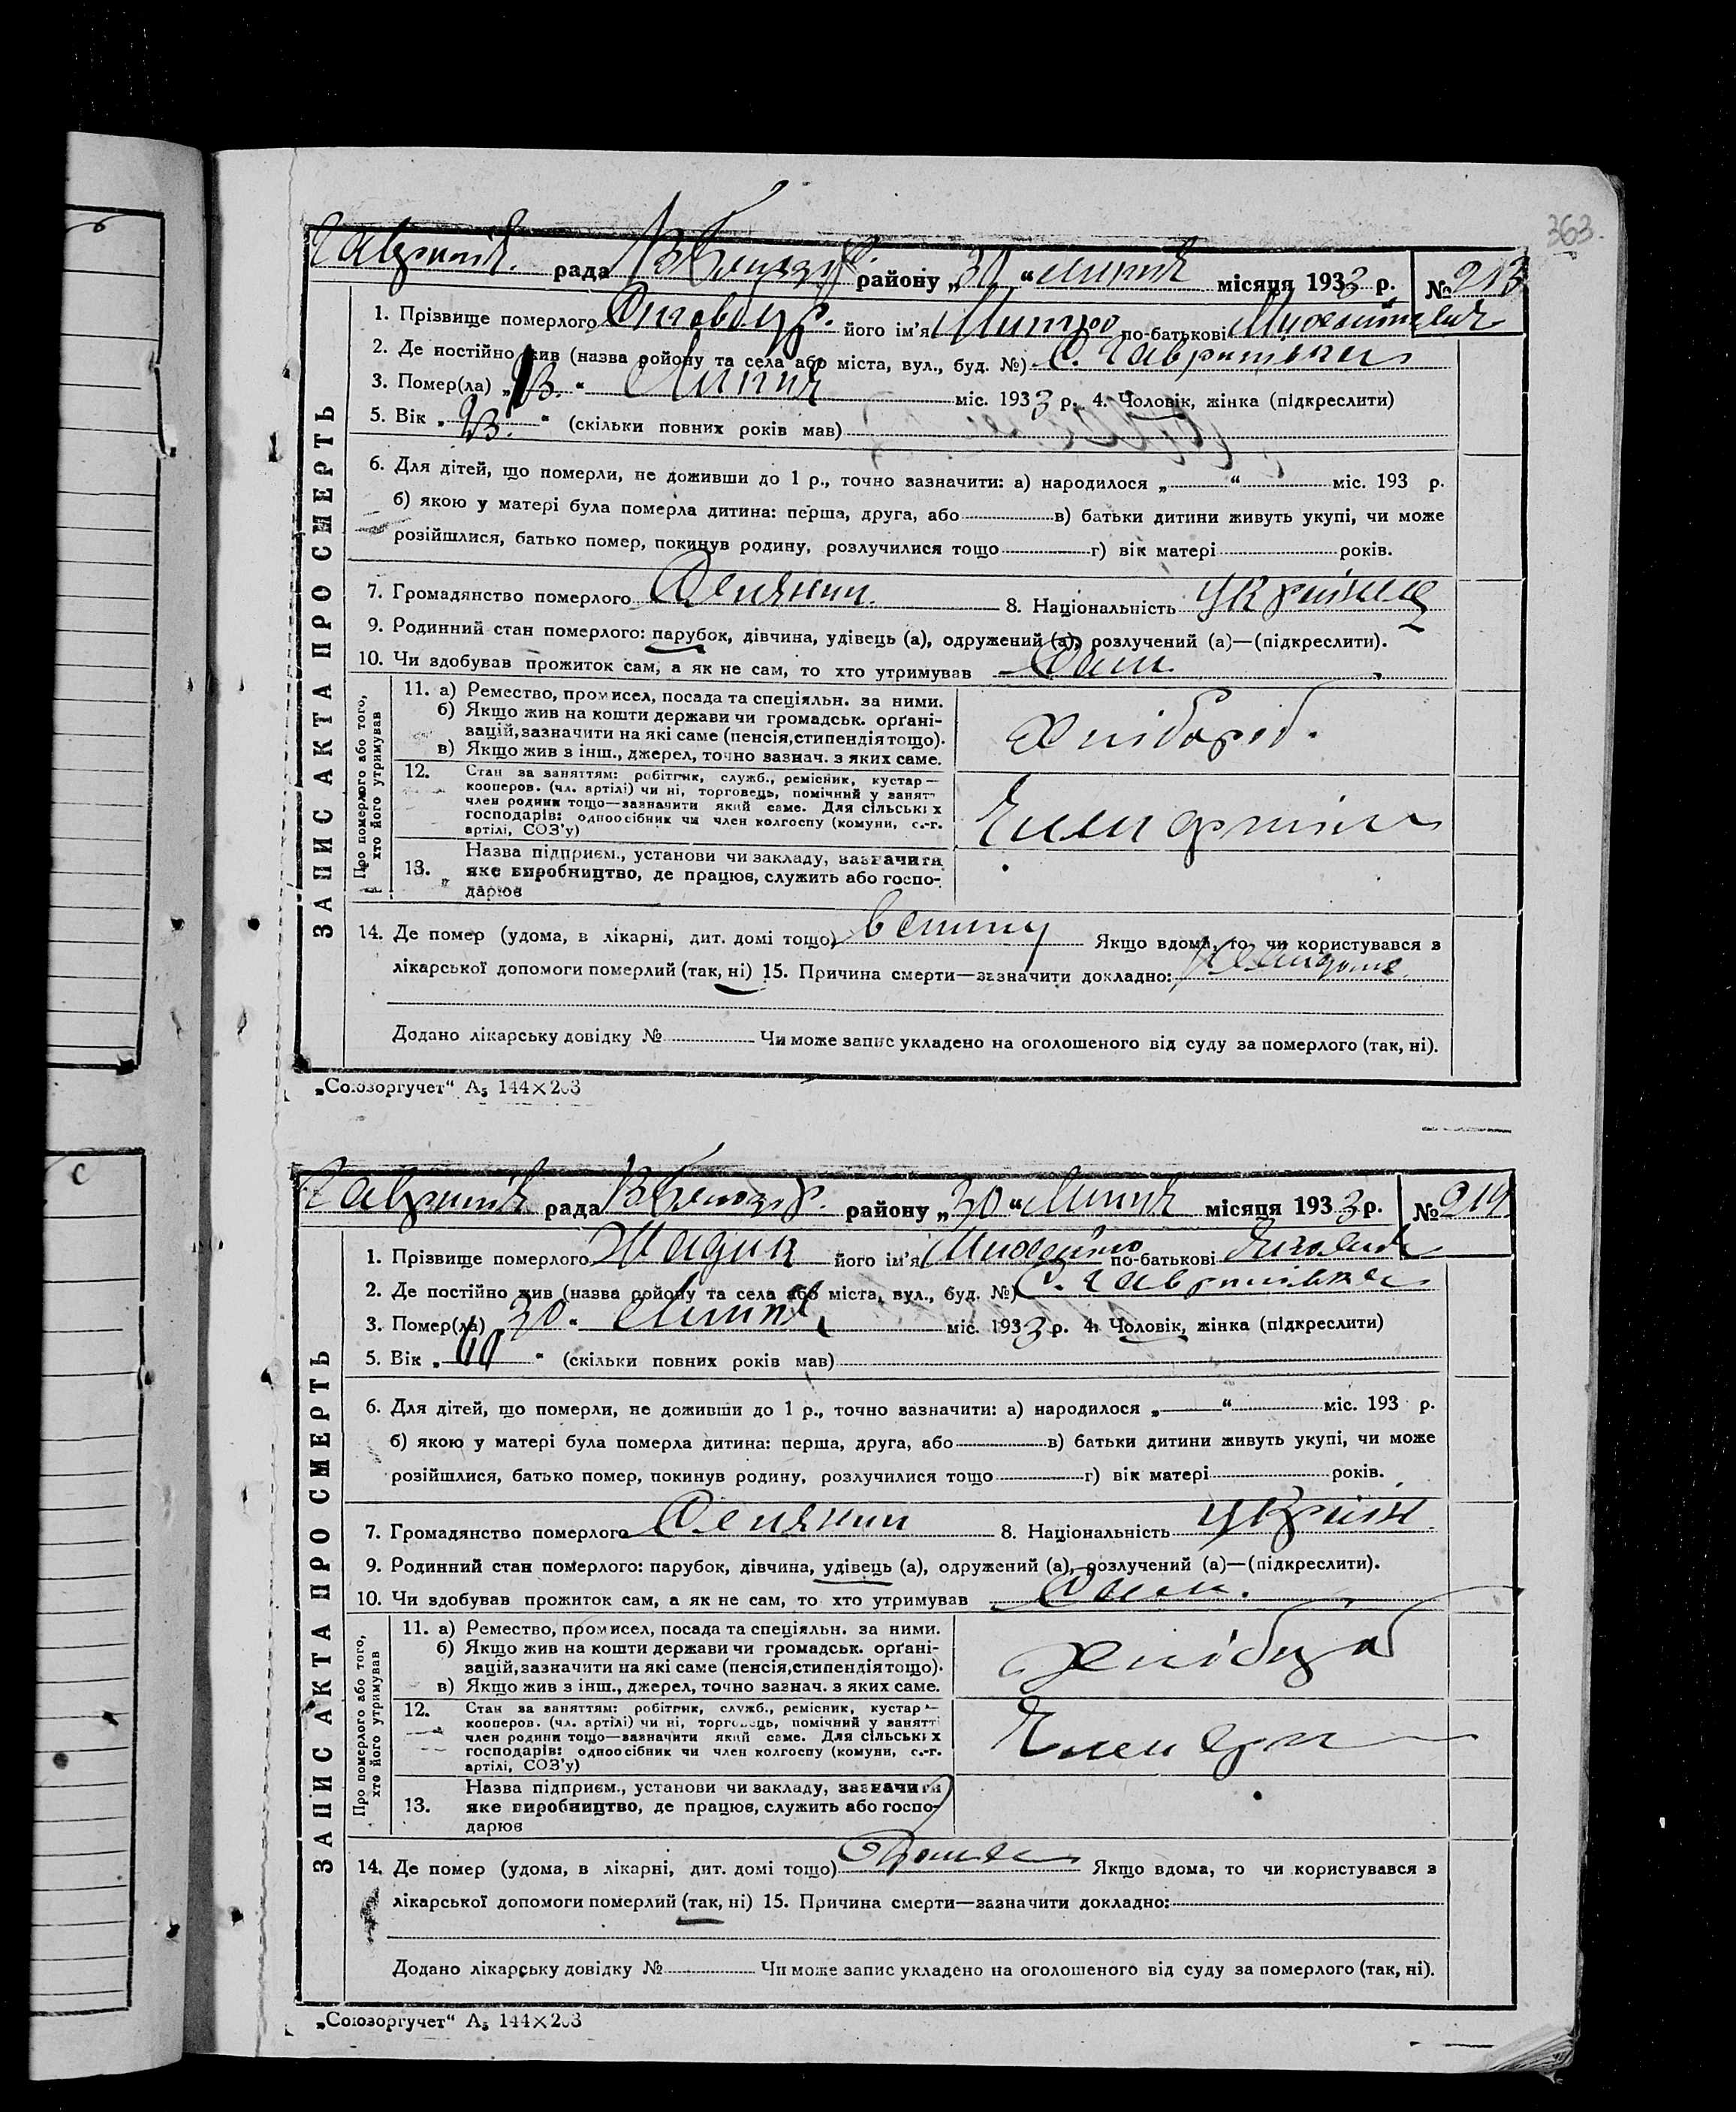 363.
рада району „30 “ липня місяця 1933 р. № 213
1. Прізвище померлого його ім'я Митро по-батькові Михайлович
2. Де постійно жив (назва району та села або міста, вул., буд. №) С. Гавришівка
3. Помер(ла) „ “ Липня міс. 1933 р. 4. Чоловік, жінка (підкреслити)
5. Вік „ “ (скільки повних років мав)
6. Для дітей, що померли, не доживши до 1 р., точно зазначити: а) народилося „ “ міс. 193 р.
б) якою у матері була померла дитина: перша, друга, або в) батьки дитини живуть укупі, чи може
розійшлися, батько помер, покинув родину, розлучилися тощо г) вік матері років.
7. Громадянство померлого Селянин. 8. Національність Українец
9. Родинний стан померлого: парубок, дівчина, удівець (а), одружений (а), розлучений (а)—(підкреслити).
10. Чи здобував прожиток сам, а як не сам, то хто утримував Сам.
ЗАПИС АКТА ПРО СМЕРТЬ
Про померлого або того,
хто його утримував
11. а) Ремество, промисел, посада та спеціяльн. за ними.
б) Якщо жив на кошти держави чи громадськ. орґані-
зацій, зазначити на які саме (пенсія, стипендія тощо).
в) Якщо жив з інш., джерел, точно зазнач. з яких саме.
Хлібороб.
12. Стан за заняттям: робітник, служб., ремісник, кустар—
кооперов. (чл. артілі) чи ні, торговець, помічний у занятт
член родини тощо—зазначити який саме. Для сільських
господарів: одноосібник чи член колгоспу (комуни, с.-г.
артілі, СОЗ'у)
13. Назва підприєм., установи чи закладу, зазначити
яке виробництво, де працює, служить або госпо-
дарює
14. Де помер (удома, в лікарні, дит. домі тощо) Якщо вдома, то чи користувався з
лікарської допомоги померлий (так, ні) 15. Причина смерти—зазначити докладно:
Додано лікарську довідку № Чи може запис укладено на оголошеного від суду за померлого (так, ні).
„Союзоргучет“ А₅ 144×203
рада району „30 “ Липня місяця 1933 р. № 214
1. Прізвище померлого його ім'я Михайло по-батькові
2. Де постійно жив (назва району та села або міста, вул., буд. №) С. Гавришівка
3. Помер(ла) 30 “ Липня міс. 1933 р. 4. Чоловік, жінка (підкреслити)
5. Вік „ 60 “ (скільки повних років мав)
6. Для дітей, що померли, не доживши до 1 р., точно зазначити: а) народилося „ “ міс. 193 р.
б) якою у матері була померла дитина: перша, друга, або в) батьки дитини живуть укупі, чи може
розійшлися, батько помер, покинув родину, розлучилися тощо г) вік матері років.
7. Громадянство померлого Селянин 8. Національність Україн
9. Родинний стан померлого: парубок, дівчина, удівець (а), одружений (а), розлучений (а)—(підкреслити).
10. Чи здобував прожиток сам, а як не сам, то хто утримував Сам.
ЗАПИС АКТА ПРО СМЕРТЬ
Про померлого або того,
хто його утримував
11. а) Ремество, промисел, посада та спеціяльн. за ними.
б) Якщо жив на кошти держави чи громадськ. орґані-
зацій, зазначити на які саме (пенсія, стипендія тощо).
в) Якщо жив з інш., джерел, точно зазнач. з яких саме.
12. Стан за заняттям: робітник, служб., ремісник, кустар—
кооперов. (чл. артілі) чи ні, торговець, помічний у занятті
член родини тощо—зазначити який саме. Для сільських
господарів: одноосібник чи член колгоспу (комуни, с.-г.
артілі, СОЗ'у)
13. Назва підприєм., установи чи закладу, зазначити
яке виробництво, де працює, служить або госпо-
дарює
14. Де помер (удома, в лікарні, дит. домі тощо) Дома Якщо вдома, то чи користувався з
лікарської допомоги померлий (так, ні) 15. Причина смерти—зазначити докладно:
Додано лікарську довідку № Чи може запис укладено на оголошеного від суду за померлого (так, ні).
„Союзоргучет“ А₅ 144×203